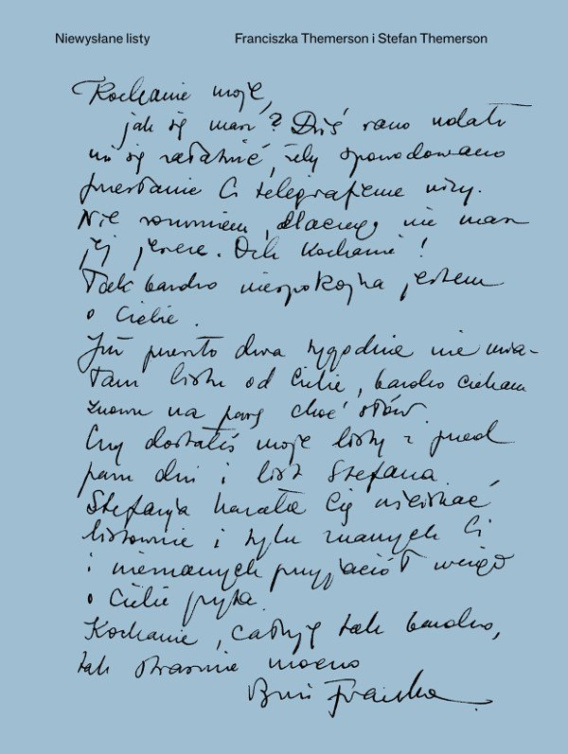 Niewysłane listy
Franciszka Themerson i Stefan Themerson
Kochanie moje,
jak się masz? Dziś rano udało
mi się załatwić, żeby spowodowano
przesłanie Ci telegraficznie wizy.
Nie rozumiem, dlaczego nie masz
jej jeszcze. Och Kochanie!
Tak bardzo niespokojna jestem
o Ciebie.
Już przeszło dwa tygodnie nie mia-
łam listu od Ciebie, bardzo czekam
znowu na parę choć słów.
Czy dostałeś moje listy z przed
paru dni i list Stefana.
Stefania kazała Cię uściskać
listownie i tylu znanych Ci
i nieznanych przyjaciół wciąż
o Ciebie pyta.
Kochanie, całuję tak bardzo,
tak strasznie mocno
Franka